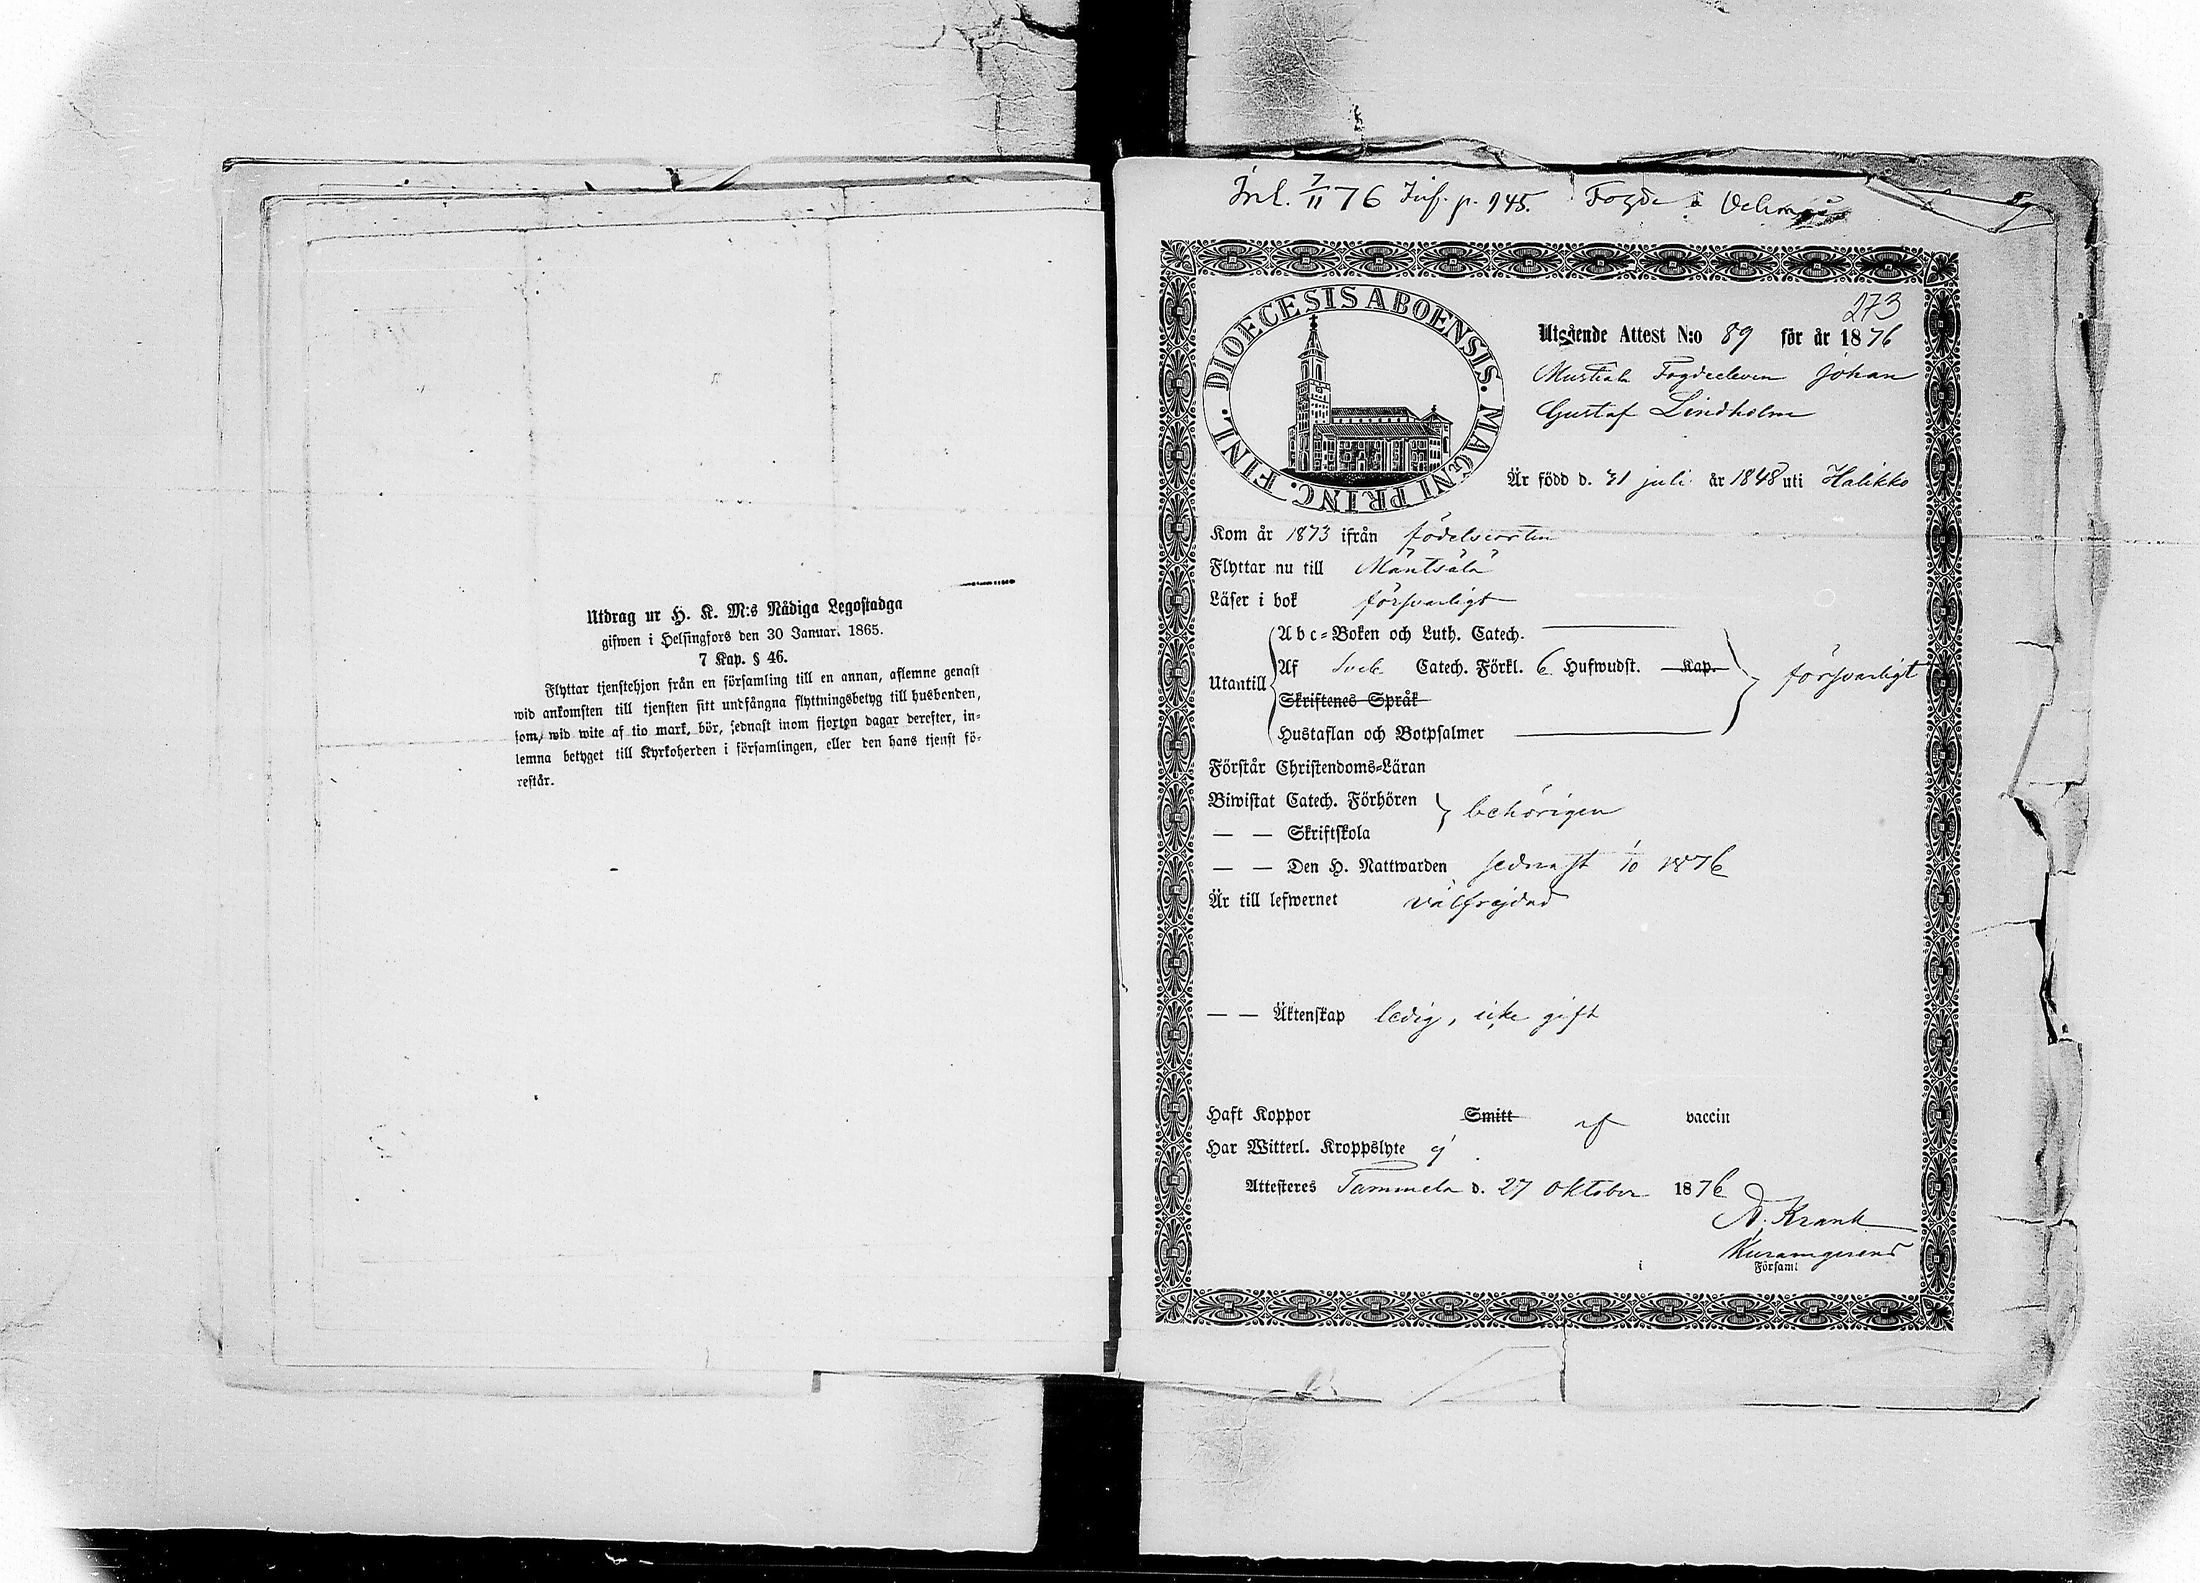 Utdrag ur H. K. M:s Nådiga Legostadga
gifwen i Helsingfors den 30 Januar. 1865.
7 Kap. § 46.
Flyttar tjenstehjon från en församling till en annan, aflemne genast
wid ankomsten till tjensten sitt undfångna flyttningsbetyg till husbonden,
som, wid wite af tio mark, bör, sednast inom fjorton dagar derefter, in-
lemna betyget till Kyrkoherden i församlingen, eller den hans tjenst fö-
restår.
Inl. 7/11 76 Inf. p. 945. Fogde
273
DIOECESIS ABOENSIS. MAGNI PRINC. FINL.
Utgående Attest N:o 89 för år 1876
Mustiala Fogdeeleven Johan
Gustaf Lindholm
Är född d. 31 juli år 1848 uti Halikko
Kom år 1873 ifrån födelseorten
Flyttar nu till Mäntsälä
Läser i bok försvarligt
Utantill
Abc-Boken och Luth. Catech.
Af Sveb. Catech. Förkl. 6 Hufwudst. Kap.
Skriftenes Språk
Hustaflan och Botpsalmer
försvarligt
Förstår Christendoms-Läran
Biwistat Catech. Förhören
— — Skriftskola
behörigen
— — Den H. Nattwarden sednast 1/10 1876
Är till lefwernet välfrejdad
— — Äktenskap ledig, icke gift
Haft Koppor Smitt af vaccin
Har Witterl. Kroppslyte ej
Attesteres Tammela d. 27 Oktober 1876
A. Krank
Kuramgerens
i Församl